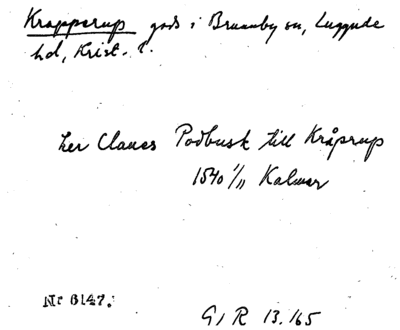 Krapperup gods i Brunnby sn, Luggude
hd, Krist. l.
her Claues Podbusk till Kråprup
1540 1/11 Kalmar
Nr 6147.
G I R 13.165